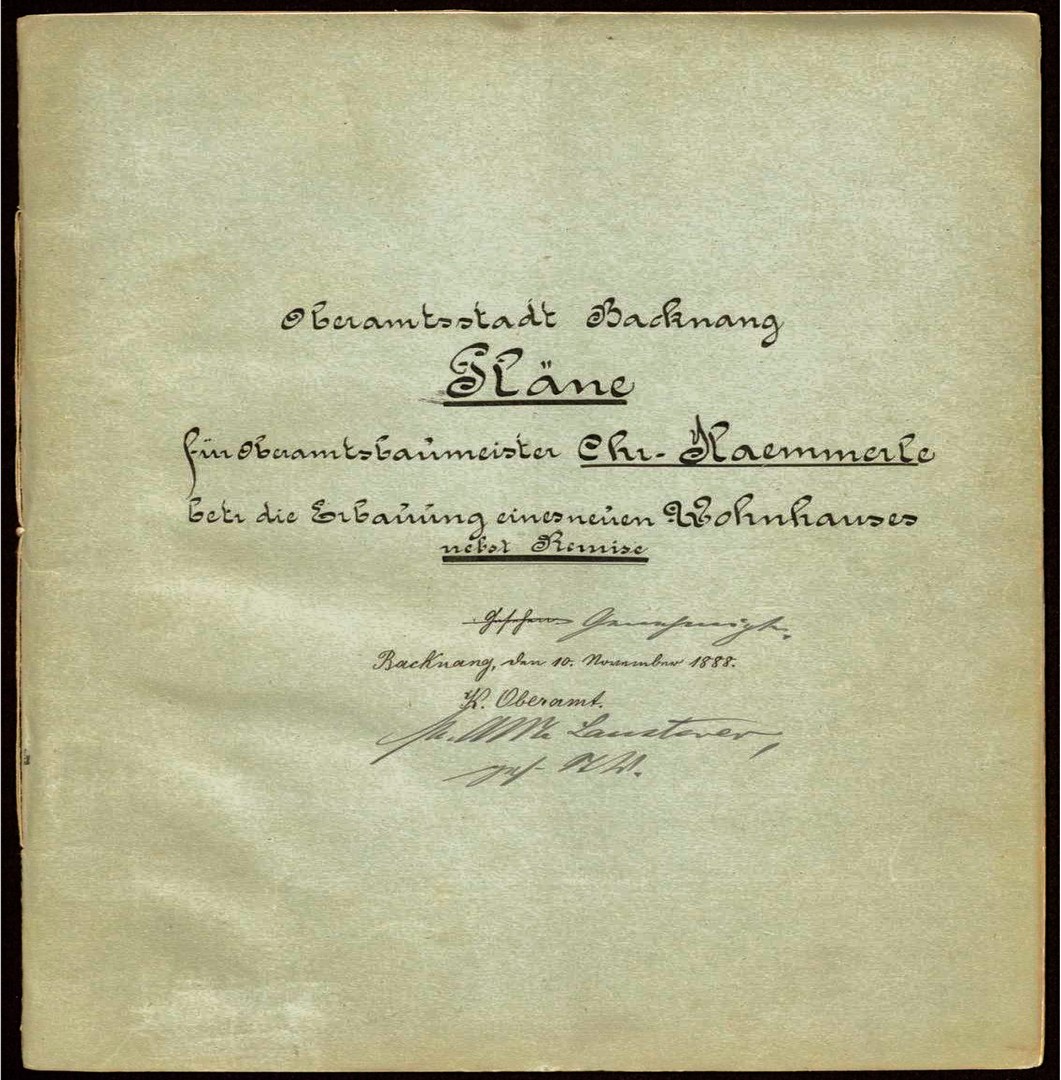 Oberamtsstadt Backnang
Pläne
für Oberamtsbaumeister Chr. Kaemmerle
betr die Erbauung eines neuen Wohnhauses
nebst Remise
Gesehen Genehmigt.
Backnang, den 10. November 1888.
K. Oberamt.